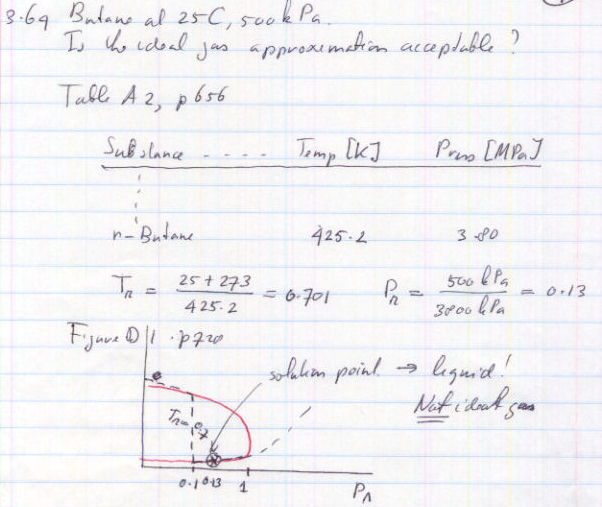 3.69 Butane at 25C, 500kPa.
Is the ideal gas approximation acceptable?
Table A2, p656
Substance - - - - Temp [K] Press [MPa]
n-Butane 425.2 3.80
Tr = 25+273 / 425.2 = 0.701 Pr = 500kPa / 3800kPa = 0.13
Figure D1 p720
solution point → liquid!
Not ideal gas
Tr=0.7
0.1 0.13 1
Pr